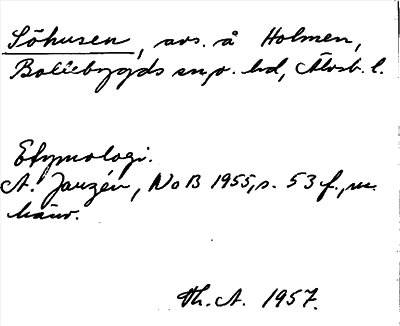 Söhusen, avs. å Holmen,
Bollebygds sn o. hd, Älvsb. l.
Etymologi.
A. Janzén, NoB 1955, s. 53 f., m.
hänv.
Th. A. 1957.